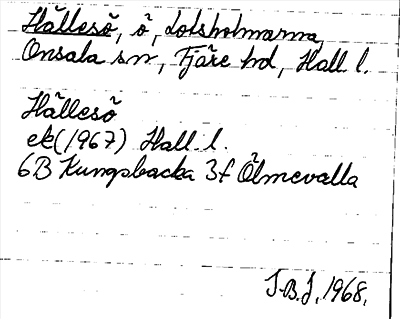 Hållesö, ö, Lotsholmarna,
Onsala sn, Fjäre hd, Hall l.
Hållesö
ek(1967) Hall l.
6B Kungsbacka 3f Ölmevalla
J.B.J. 1968.